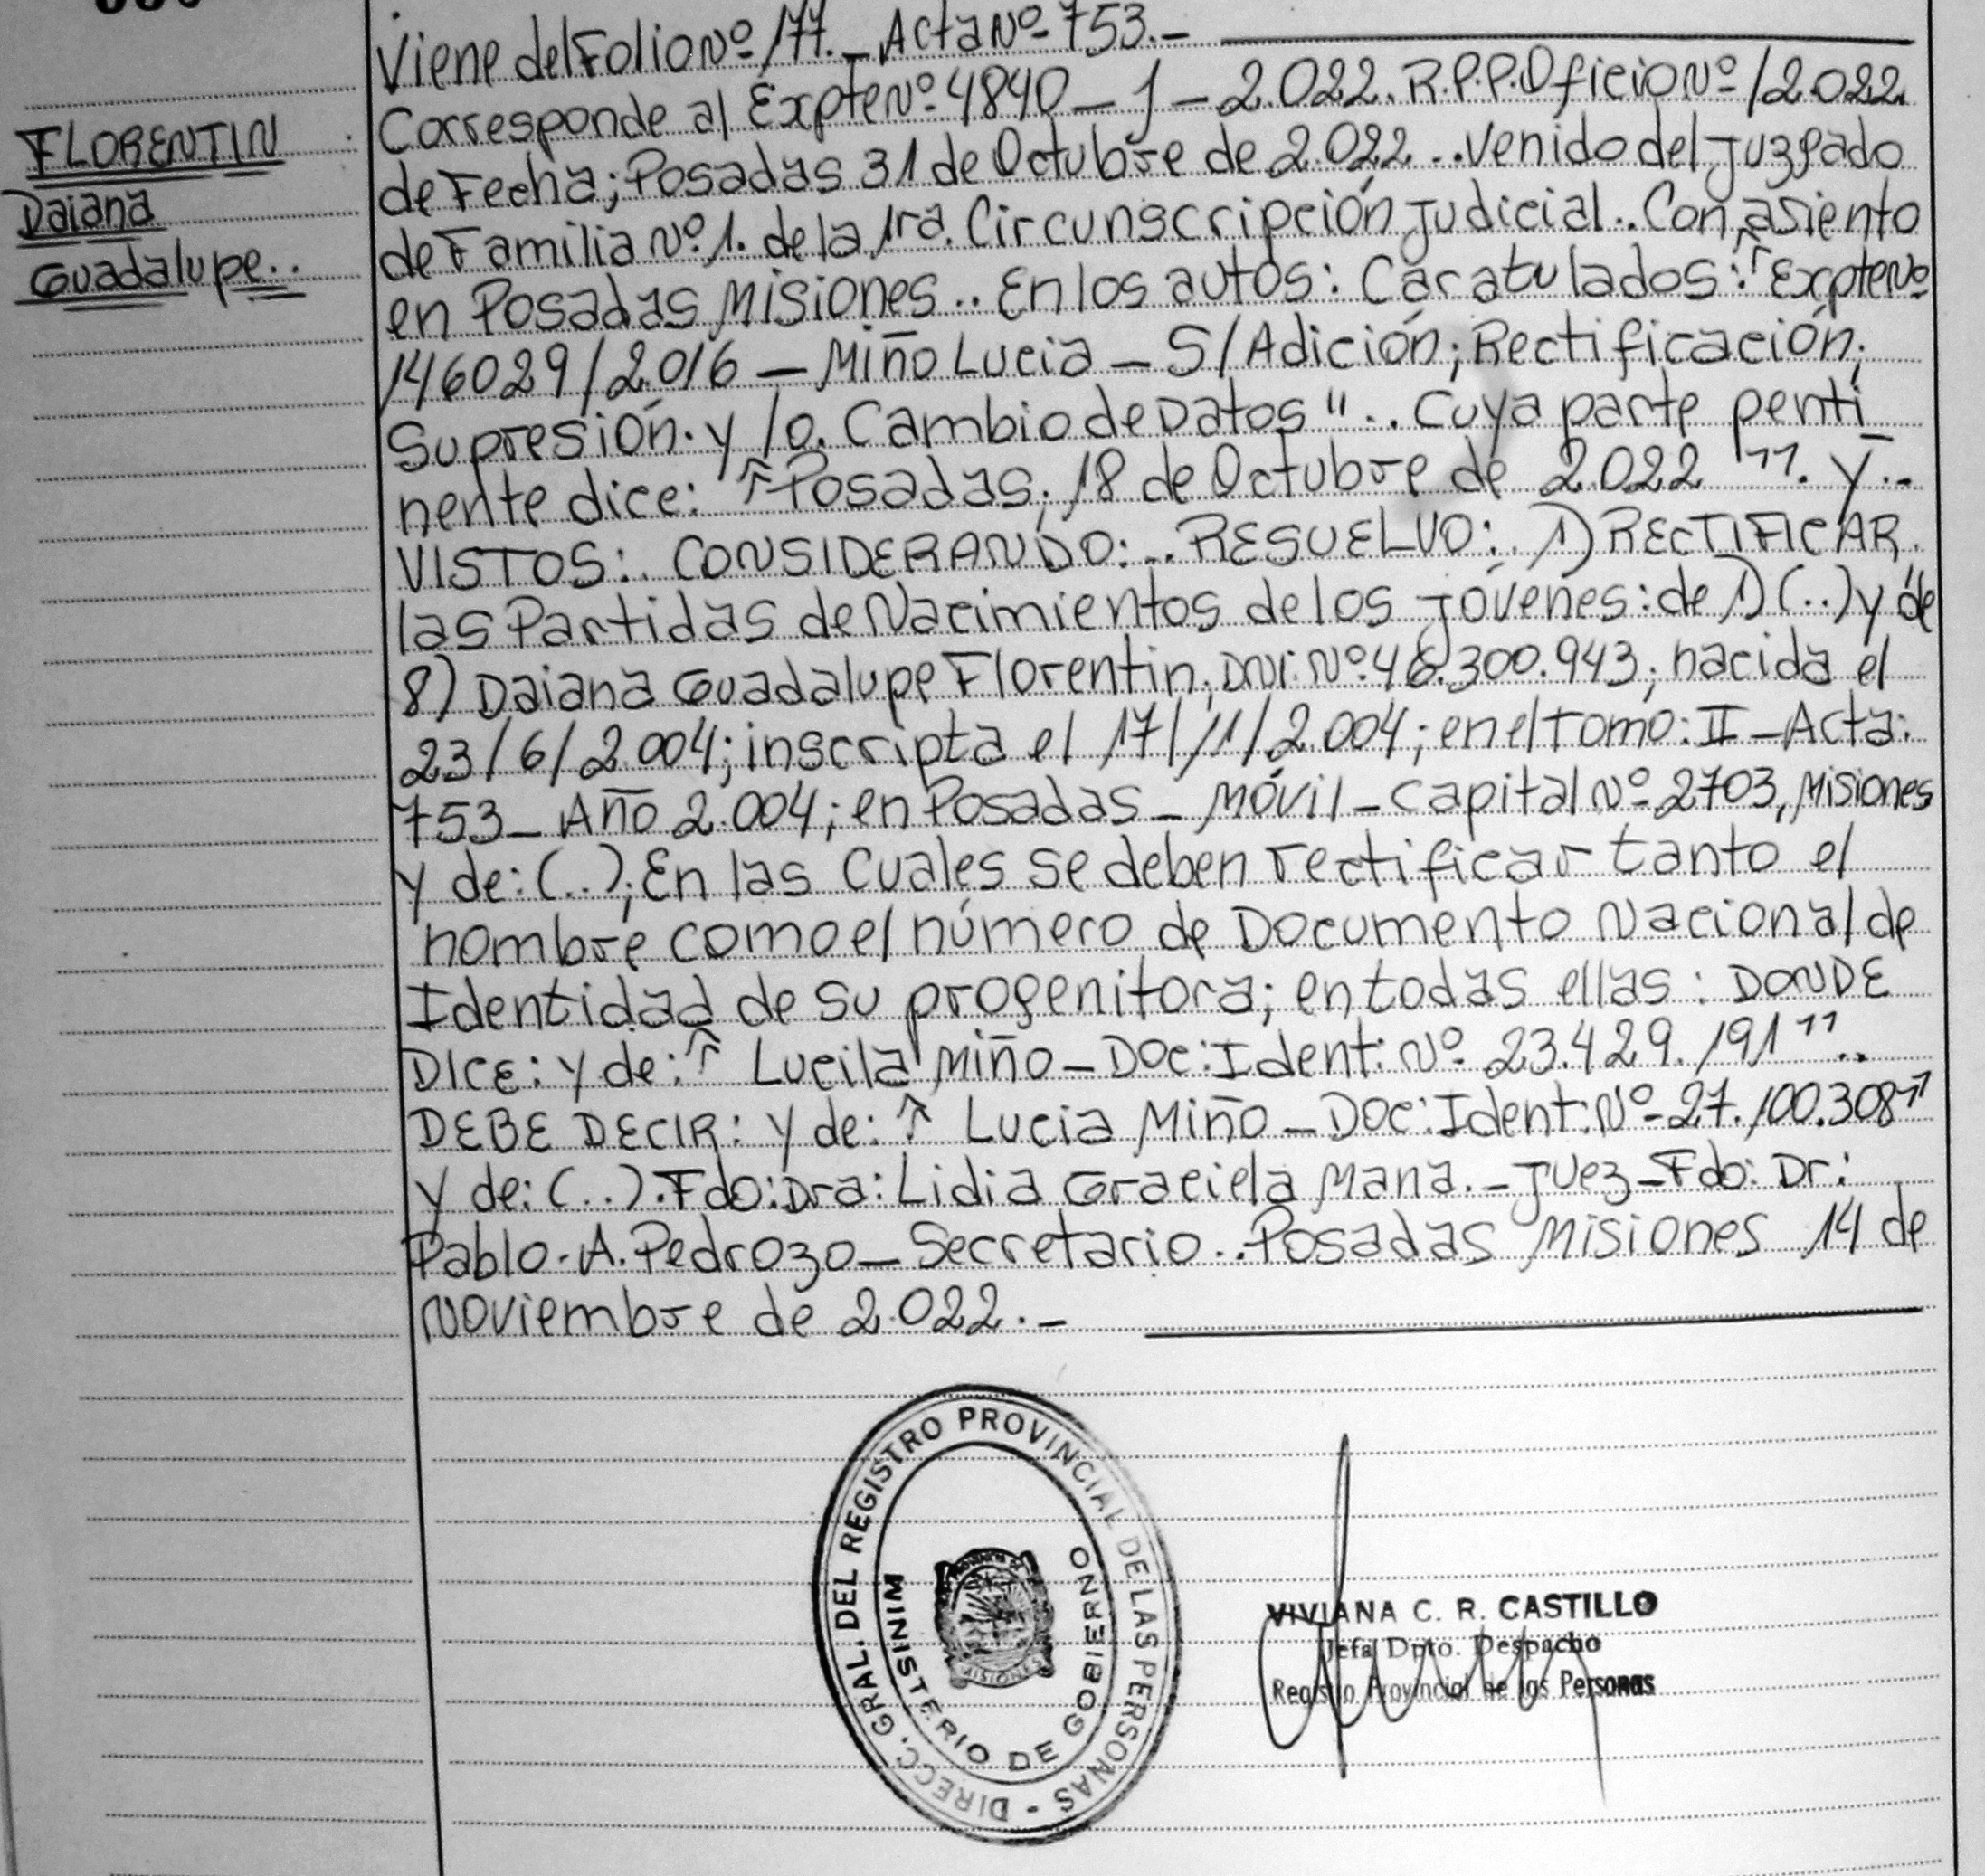 FLORENTIN
Daiana
Guadalupe..
Viene del Folio Nº 177._ Acta Nº 753.-
Corresponde al Expte Nº 4840 - J - 2.022. R.P.P. Oficio Nº /2.022.
de Fecha; Posadas 31 de Octubre de 2.022... Venido del Juzgado
de Familia Nº 1. de la 1ra. Circunscripción Judicial.. Con asiento
en Posadas Misiones.. En los autos: Caratulados: "Expte Nº
146029/2.016 - Miño Lucia - S/Adición; Rectificación;
Supresión. y /o. Cambio de Datos".. Cuya parte penti_
nente dice: "Posadas, 18 de Octubre de 2.022". Y..
VISTOS:. CONSIDERANDO:.. RESUELVO:. 1) RECTIFICAR.
las Partidas de Nacimientos de los Jóvenes: de 1) (..) y de
8) Daiana Guadalupe Florentin, DNI: Nº 46.300.943; nacida el
23/6/2.004; inscripta el 17/11/2.004; en el Tomo: II - Acta:
753 - Año 2.004; en Posadas - Móvil - Capital Nº 2703, Misiones
y de: (..); En las Cuales se deben rectificar tanto el
nombre como el número de Documento Nacional de
Identidad de su progenitora; en todas ellas: DONDE
DICE: y de: " Lucila Miño - Doc: Ident: Nº 23.429.191"..
DEBE DECIR: y de: " Lucia Miño - Doc: Ident: Nº 27.100.308"
y de: (..). Fdo: Dra: Lidia Graciela Mana. - Juez - Fdo: Dr:
Pablo. A. Pedrozo - Secretario.. Posadas Misiones 14 de
Noviembre de 2.022.-
DIRECC. GRAL. DEL REGISTRO PROVINCIAL DE LAS PERSONAS -
MINISTERIO DE GOBIERNO
MISIONES
VIVIANA C. R. CASTILLO
Jefa Dpto. Despacho
Registro Provincial de las Personas